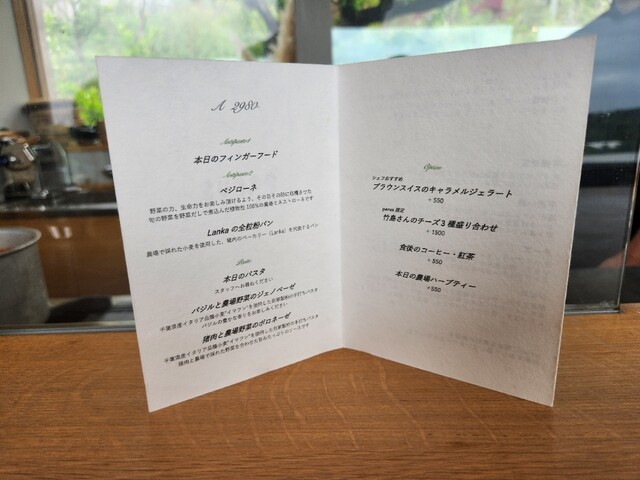 A 2980
Antipasto1
本日のフィンガーフード
Antipasto2
ベジローネ
野菜の力、生命力をお楽しみ頂けるよう、その日その時に収穫できた
旬の野菜を野菜だしで煮込んだ植物性100%の農場ミネストローネです
Lankaの全粒粉パン
農場で採れた小麦を使用した、場内のベーカリー(Lanka)を代表するパン
Pasta
本日のパスタ
スタッフへお尋ねください
バジルと農場野菜のジェノベーゼ
千葉県産イタリア品種小麦"イマフン"を使用した自家製麺の手打ちパスタ
バジルの豊かな香りをお楽しみください
猪肉と農場野菜のボロネーゼ
千葉県産イタリア品種小麦"イマフン"を使用した自家製麺の手打ちパスタ
猪肉と農場で採れた野菜を合わせた旨みたっぷりのソースです
Option
シェフおすすめ
ブラウンスイスのキャラメルジェラート
+550
parus 限定
竹島さんのチーズ3種盛り合わせ
+1500
食後のコーヒー・紅茶
+350
本日の農場ハーブティー
+550